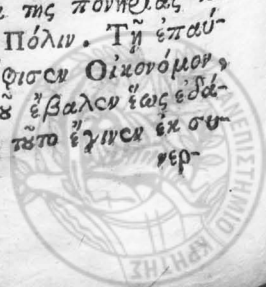 της πονηρίας
Πόλιν. Τῇ ἐπαύ-
φισεν Οἰκονόμον,
ῦ ἔβαλεν ἕως ἐδά-
τοῦτο ἔγινεν ἐκ συ-
νερ-
ΑΝΕΠΙΣΤΗΜΙΟ ΚΡΗΤΗΣ